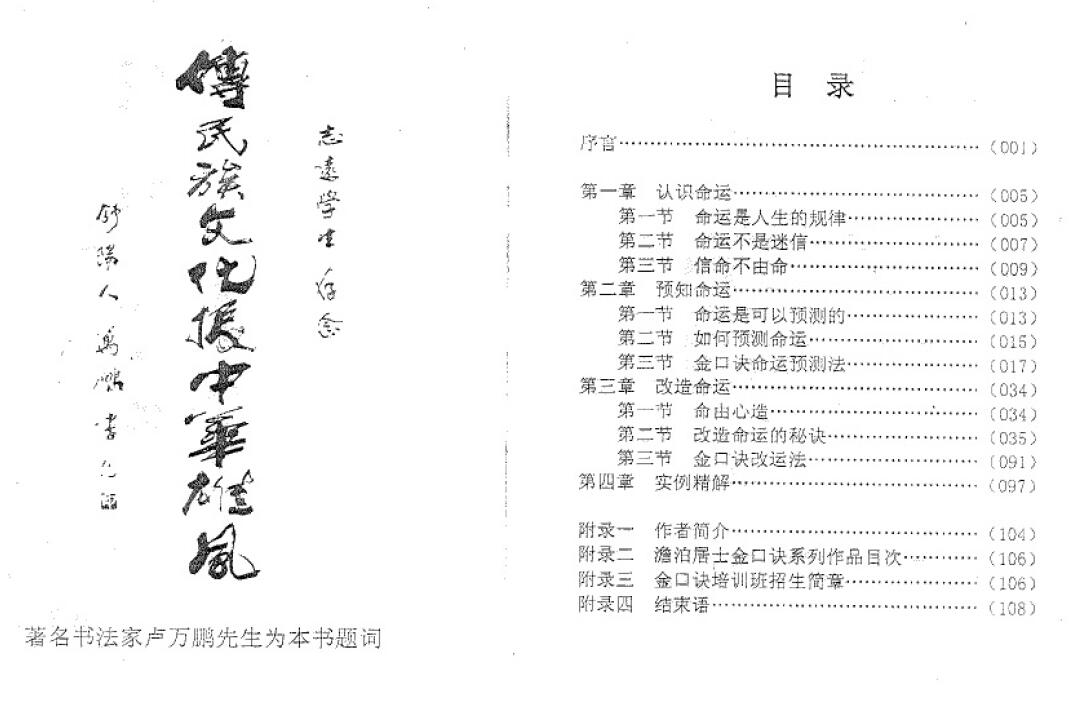 志遠學生存念
傳民族文化振中華雄風
人萬鵬書
著名书法家卢万鹏先生为本书题词
目 录
序言………………………………………(001)
第一章 认识命运…………………………(005)
第一节 命运是人生的规律……………(005)
第二节 命运不是迷信…………………(007)
第三节 信命不由命……………………(009)
第二章 预知命运…………………………(013)
第一节 命运是可以预测的……………(013)
第二节 如何预测命运…………………(015)
第三节 金口诀命运预测法……………(017)
第三章 改造命运…………………………(034)
第一节 命由心造………………………(034)
第二节 改造命运的秘诀………………(035)
第三节 金口诀改运法…………………(091)
第四章 实例精解…………………………(097)
附录一 作者简介…………………………(104)
附录二 澹泊居士金口诀系列作品目次………(106)
附录三 金口诀培训班招生简章……………(106)
附录四 结束语……………………………(108)